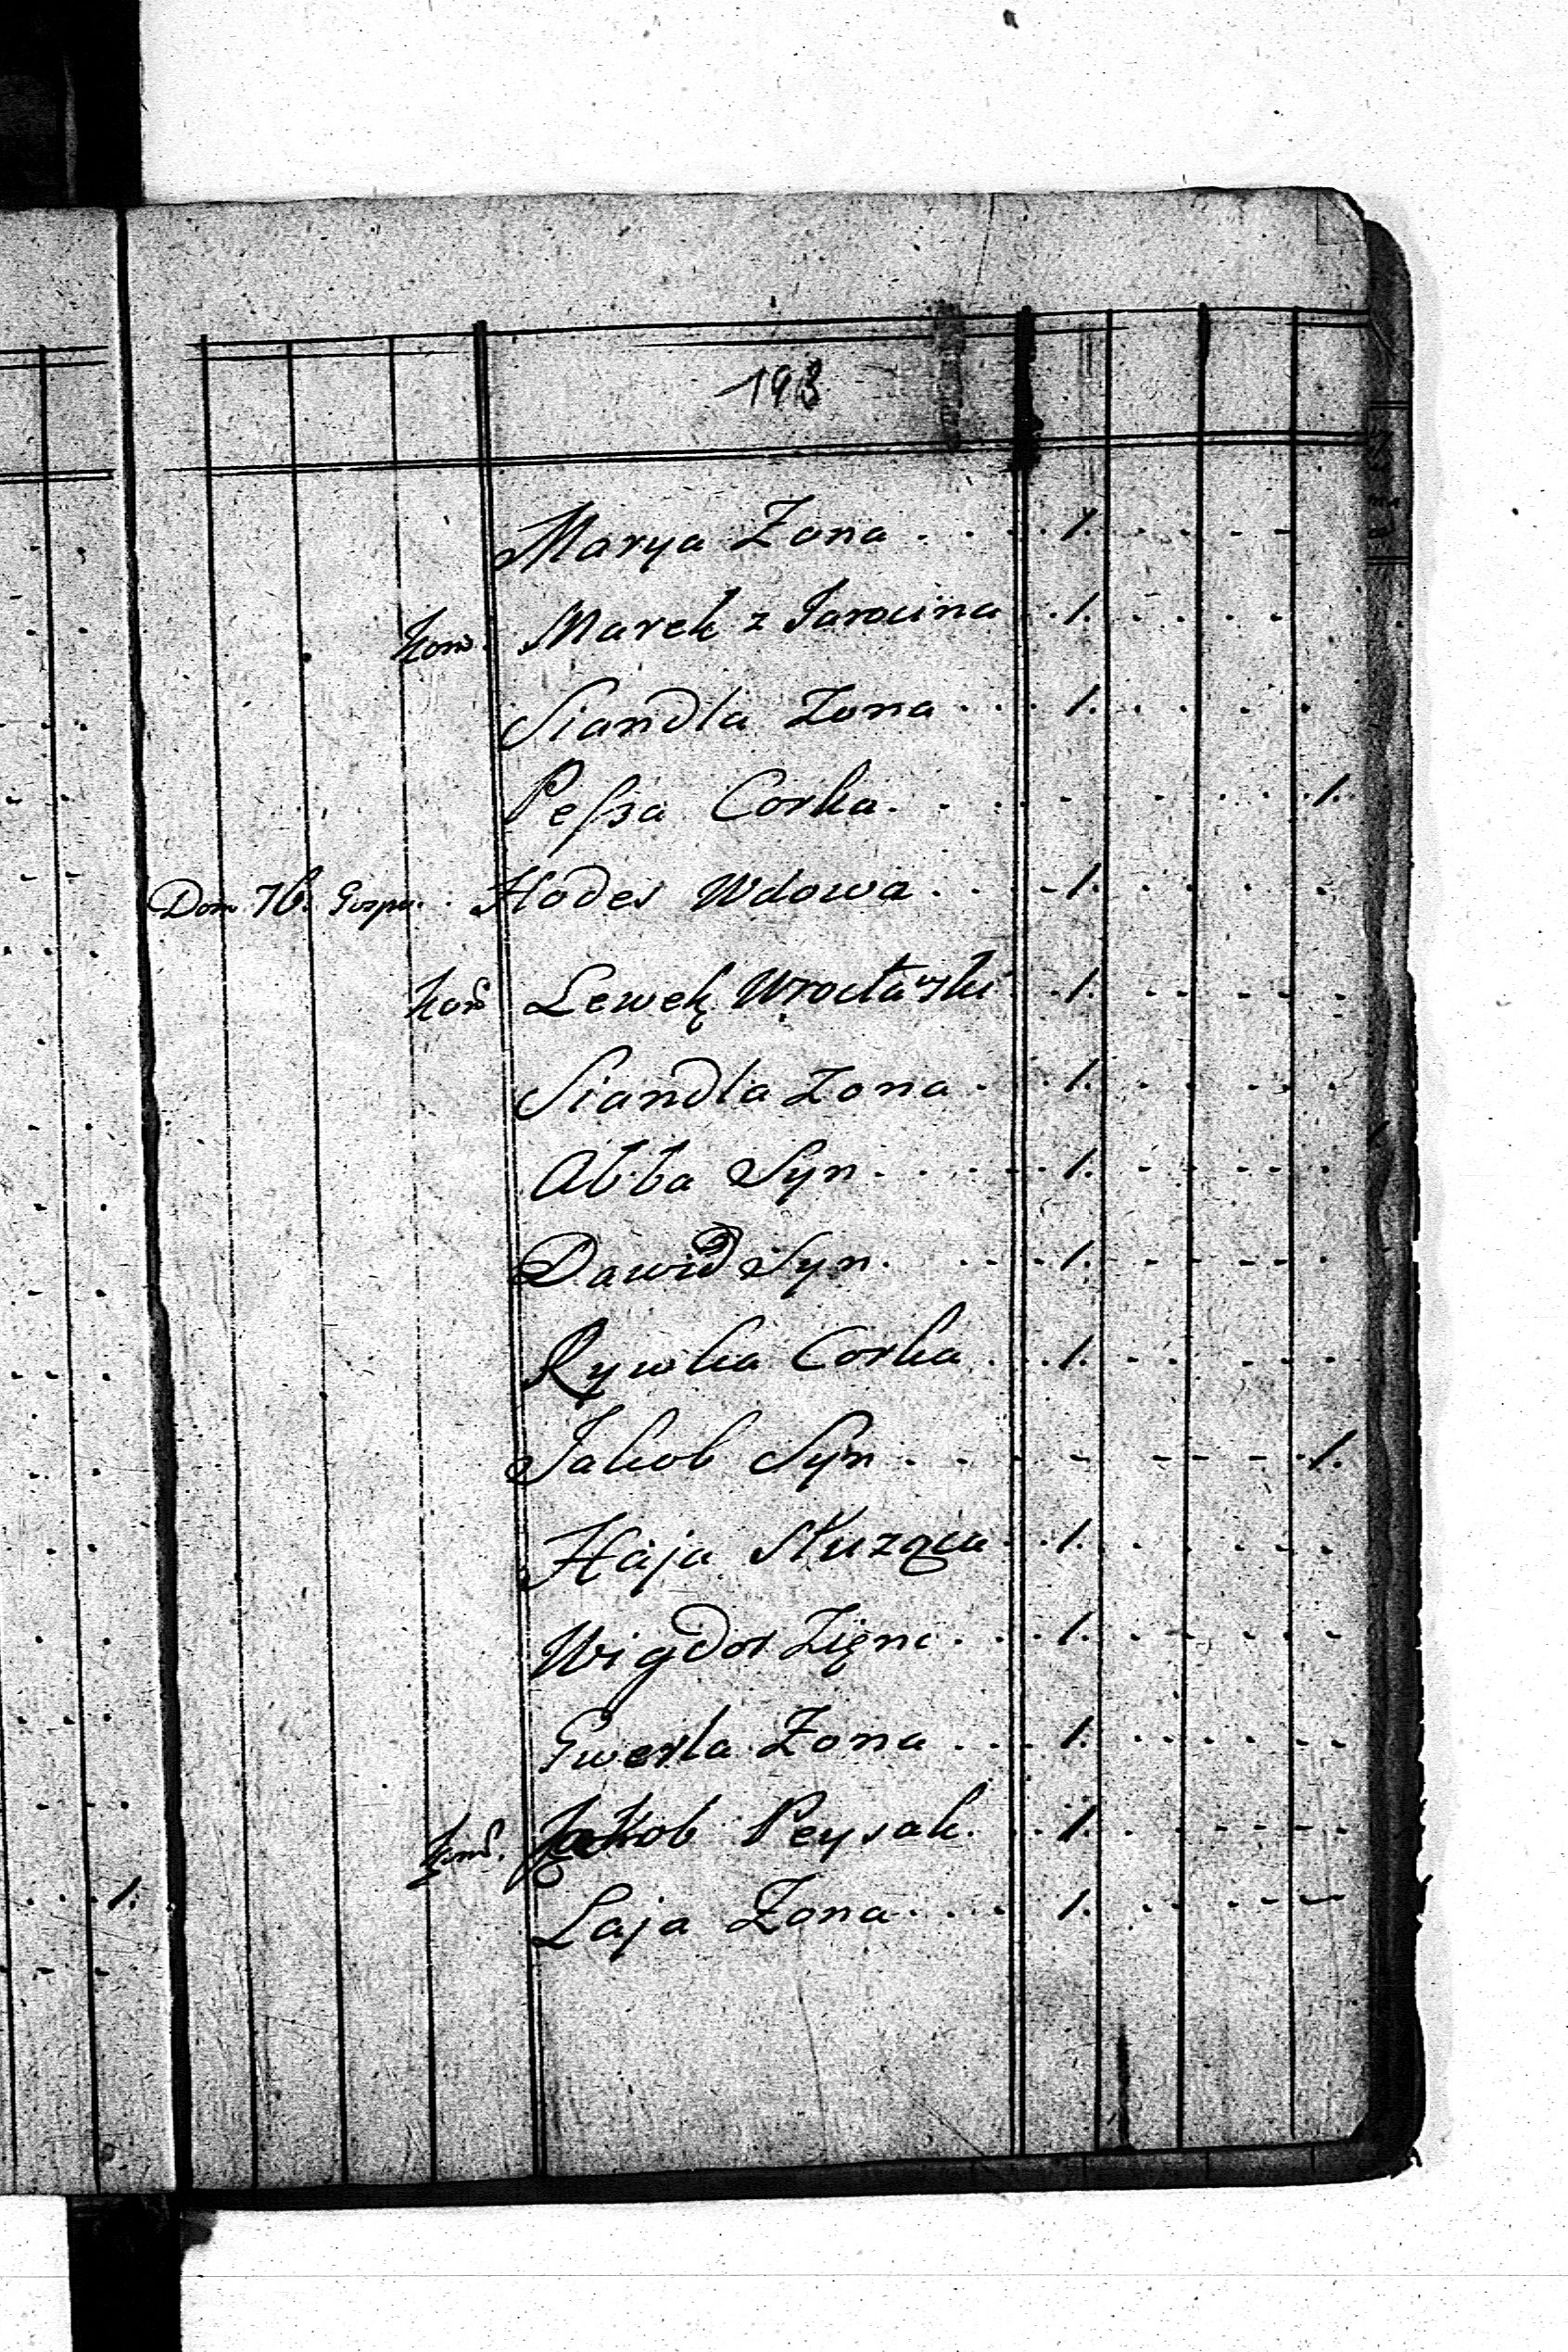 193
Marya Zona . . . . 1. . . . - - -
kom. Marek z Jarocina . . 1. . . . . .
Siandla Zona . . . 1. . . . . .
Pessa Corka. . . . - - . . . . 1.
Dom 76. Gospo. . Hodes Wdowa . . . - 1. . . . . .
kom Lewek Wrocławski . . 1. . - - - -
Siandla Zona . . . 1. . . - - .
Abba Syn . . . . . - 1. - . - - -
Dawid Syn . . . - - 1. - . - - .
Rywka Corka . . . 1. - . - - -
Jakob Syn . . - - - - - - 1.
Haja Służąca . . 1. . . . - - .
Wigdor Zięnc . . . 1. - . - - -
Gwerla Zona . . . . 1. . . . . - -
kom. Jakob Peysak . . . 1. . - - - -
Laja Zona . . . . 1. . . - - -
1.